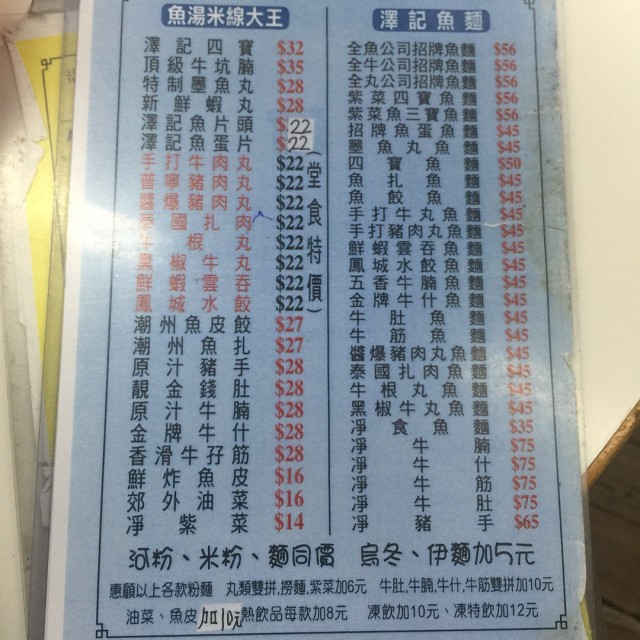 魚湯米線大王
澤記四寶 $32
頂級牛坑腩 $35
特制墨魚丸 $28
新鮮蝦丸 $28
澤記魚片頭 $22
澤記魚蛋片 $22
手打牛肉丸 $22
普寧豬肉丸 $22
醬爆豬肉丸 $22
泰國扎肉 $22
牛根丸 $22
黑椒牛丸 $22
鮮蝦雲吞 $22
鳳城水餃 $22
(堂食特價)
潮州魚皮餃 $27
潮州魚扎 $27
原汁豬手 $28
靚金錢肚 $28
原汁牛腩 $28
金牌牛什 $28
香滑牛孖筋 $28
鮮炸魚皮 $16
郊外油菜 $16
凈紫菜 $14
澤記魚麵
全魚公司招牌魚麵 $56
全牛公司招牌魚麵 $56
全丸公司招牌魚麵 $56
紫菜四寶魚麵 $56
紫菜魚三寶魚麵 $56
招牌魚蛋魚麵 $45
墨魚丸魚麵 $45
四寶魚麵 $50
魚扎魚麵 $45
魚餃魚麵 $45
手打牛丸魚麵 $45
手打豬肉丸魚麵 $45
鮮蝦雲吞魚麵 $45
鳳城水餃魚麵 $45
五香牛腩魚麵 $45
金牌牛什魚麵 $45
牛肚魚麵 $45
牛筋魚麵 $45
醬爆豬肉丸魚麵 $45
泰國扎肉魚麵 $45
牛根丸魚麵 $45
黑椒牛丸魚麵 $45
凈食魚麵 $35
凈牛腩 $75
凈牛什 $75
凈牛筋 $75
凈牛肚 $75
凈豬手 $65
河粉、米粉、麵同價 烏冬、伊麵加5元
惠顧以上各款粉麵 丸類雙拼,撈麵,紫菜加6元 牛肚,牛腩,牛什,牛筋雙拼加10元
油菜、魚皮加10元 熱飲品每款加8元 凍飲加10元、凍特飲加12元